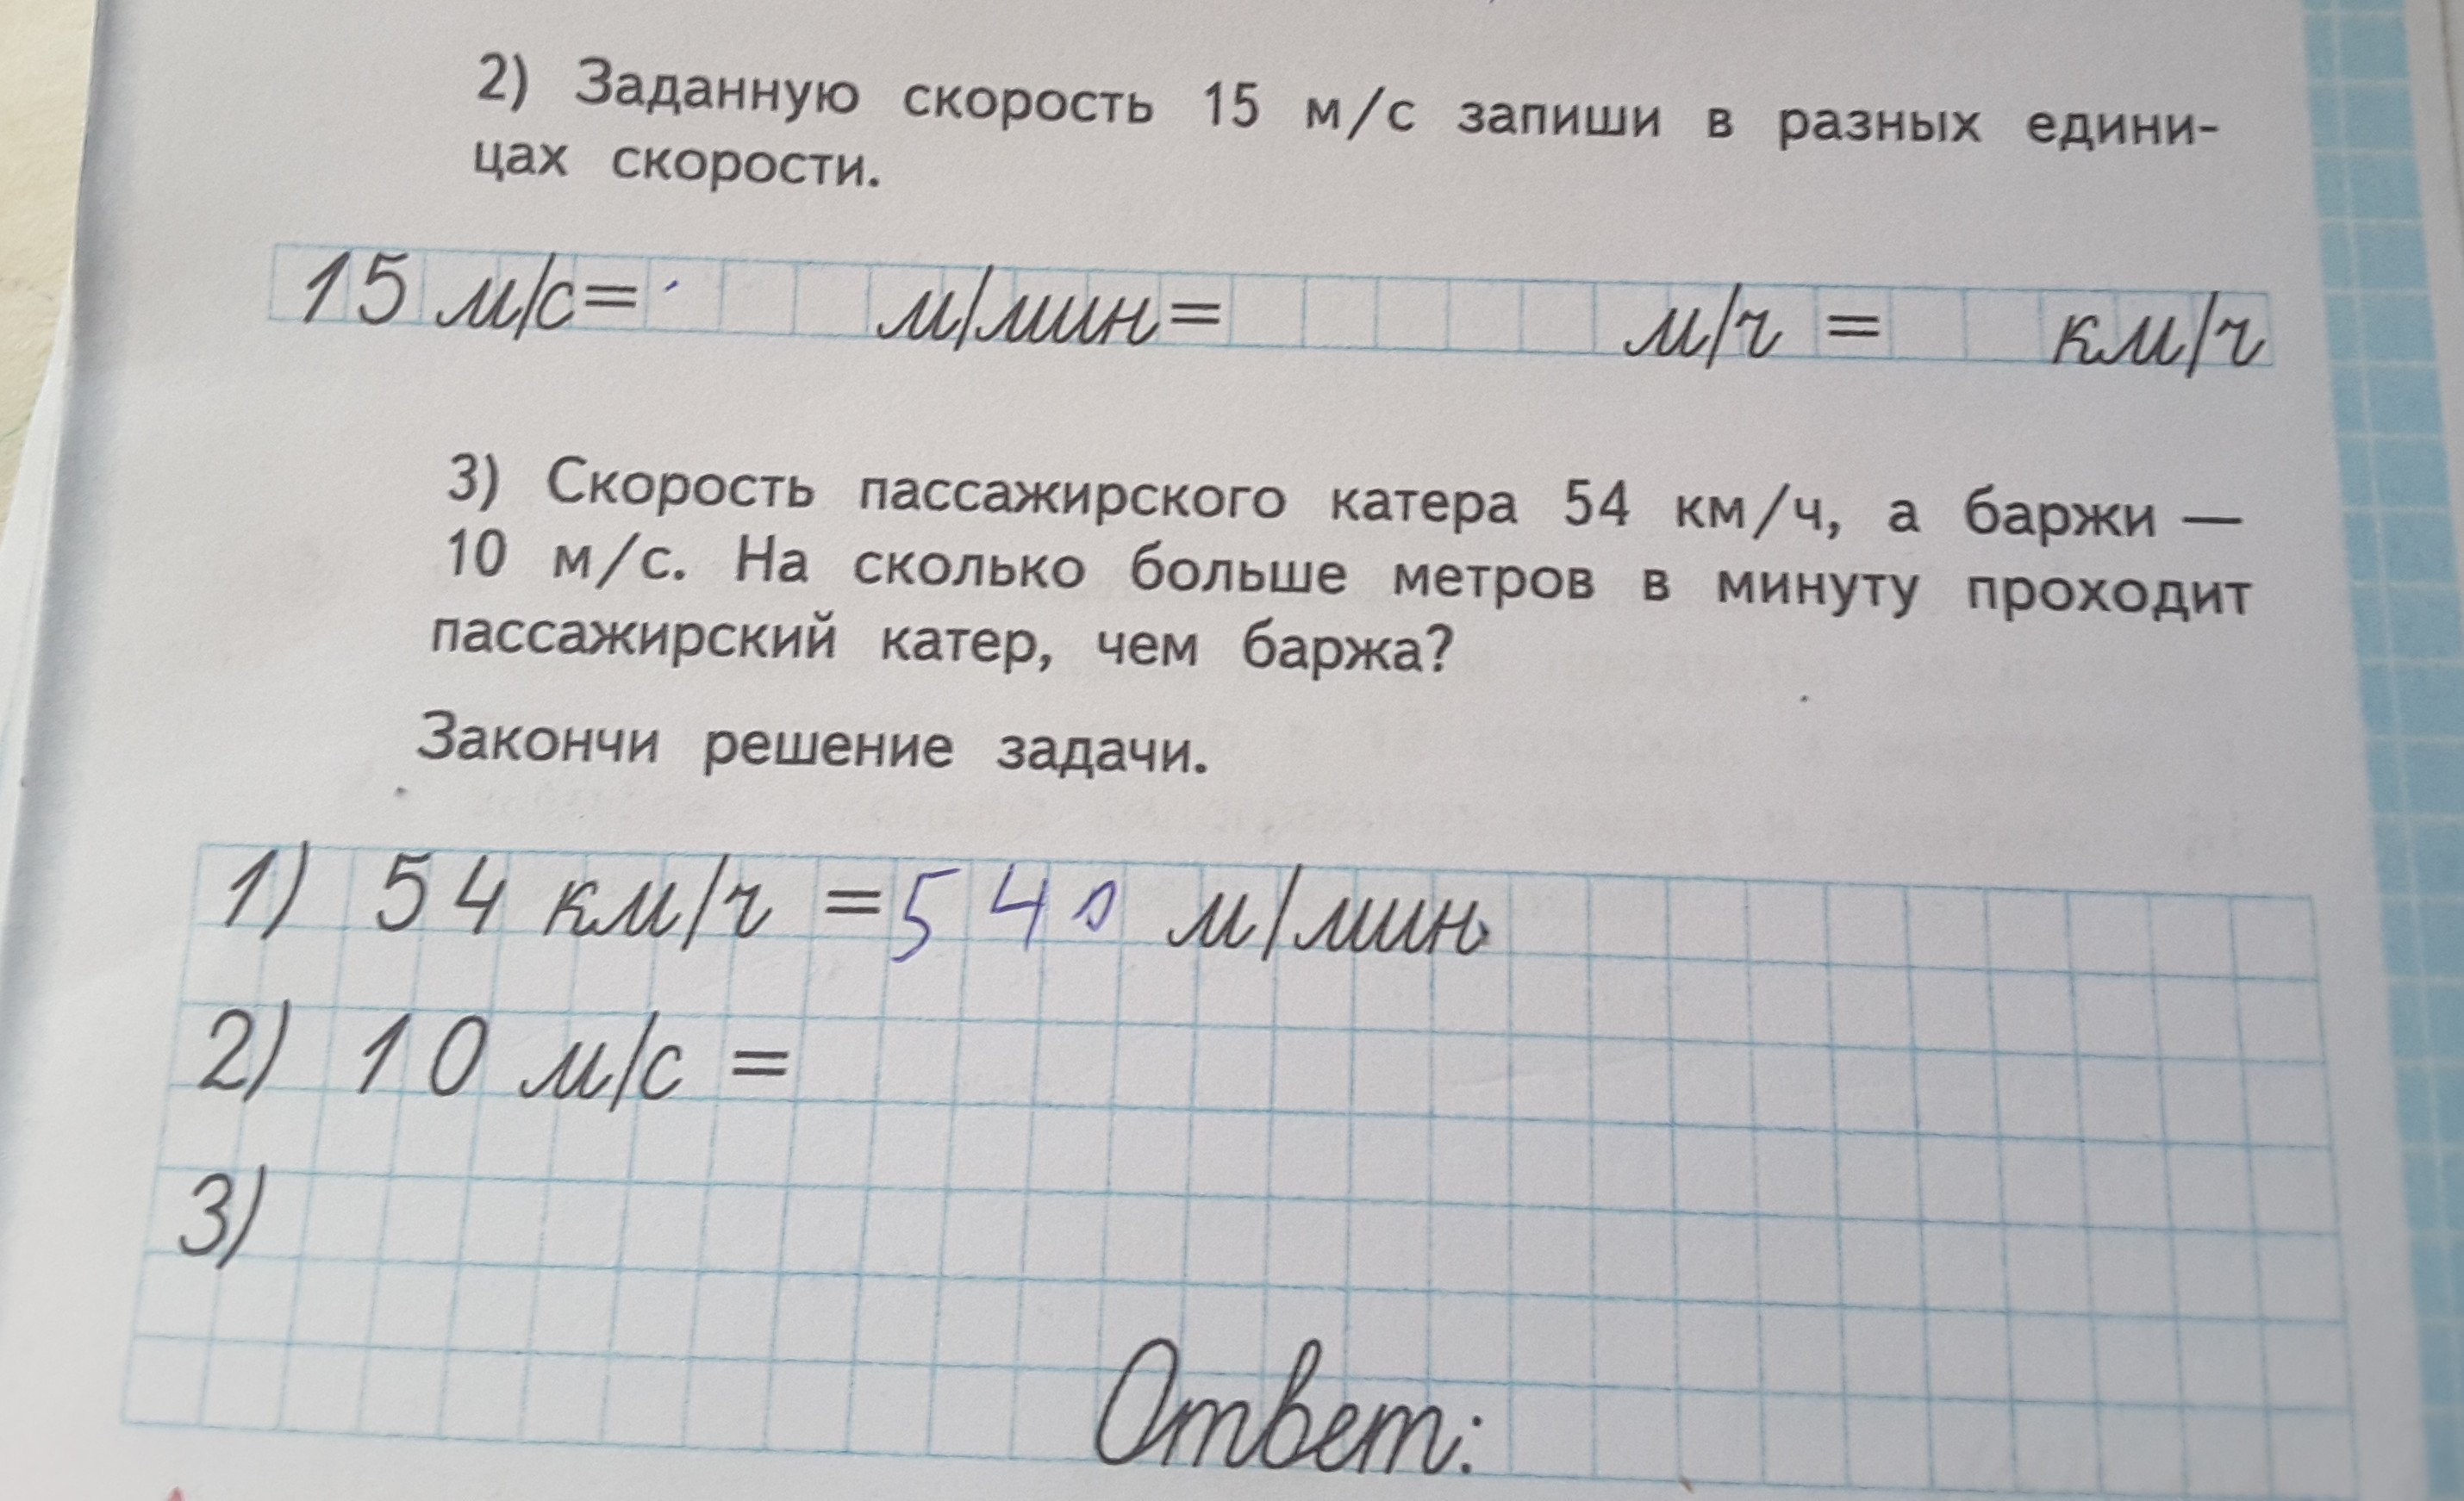 2) Заданную скорость 15 м/с запиши в разных едини-
цах скорости.
15 м/с= м/мин= м/ч = км/ч
3) Скорость пассажирского катера 54 км/ч, а баржи —
10 м/с. На сколько больше метров в минуту проходит
пассажирский катер, чем баржа?
Закончи решение задачи.
1) 54 км/ч =540 м/мин
2) 10 м/с =
3)
Ответ: